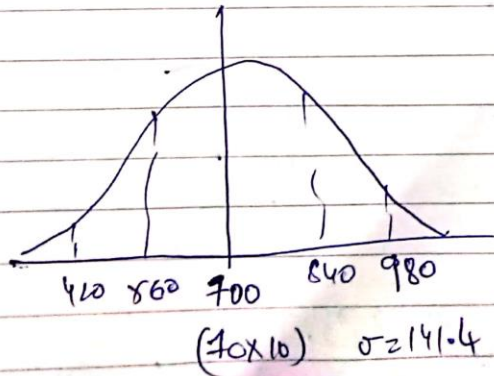 420 560 700 840 980
(70×10) σ=141.4